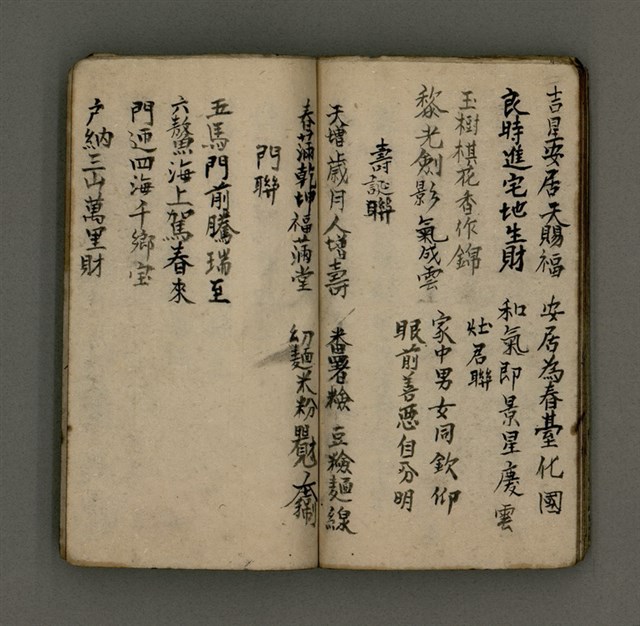 吉星安居天賜福
良時進宅地生財
玉樹棋花香作錦
黎光劍影氣成雲
壽誕聯
天增歲月人增壽
春滿乾坤福滿堂
安居為春臺化國
和氣即景星慶雲
灶君聯
家中男女同欽仰
眼前善惡自分明
番署檢 豆檢麵線
幼麵米粉
門聯
五馬門前騰瑞至
六鰲海上駕春來
門迎四海千鄉宝
户納三山萬里財